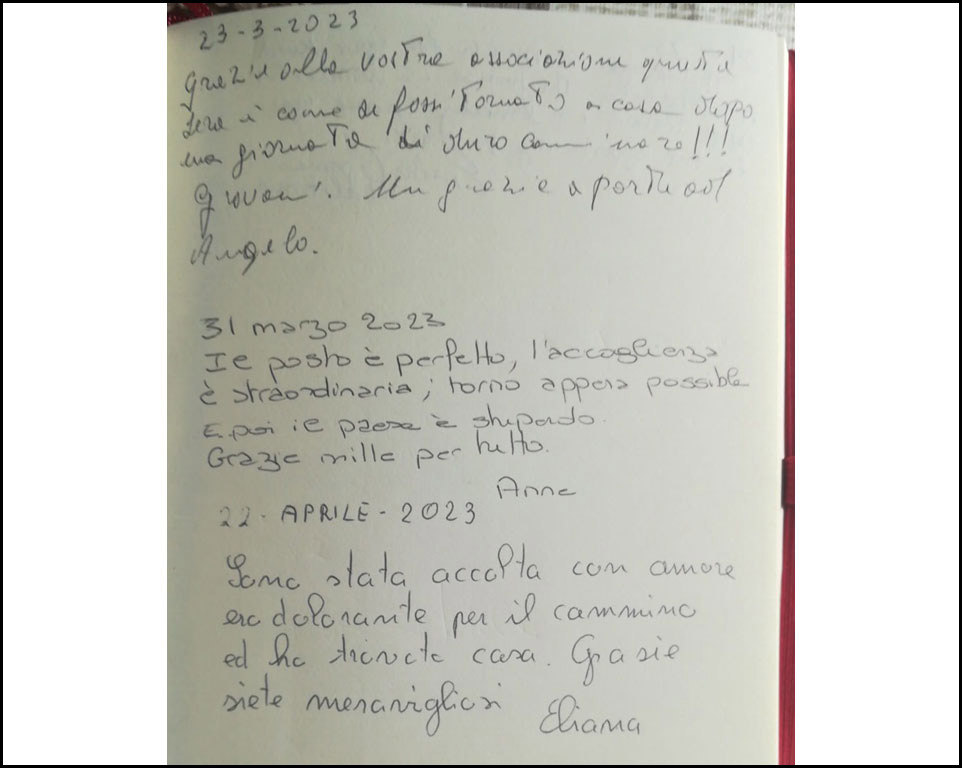 23-3-2023
Grazie alla vostra associazione questa
sera è come se fossi tornato a casa dopo
una giornata di duro camminare!!!
Giovanni. Un grazie a parte ad
Angelo.
31 marzo 2023
Il posto è perfetto, l'accoglienza
è straordinaria; torno appena possible
E poi il paese è stupendo.
Grazie mille per tutto.
Anne
22-APRILE-2023
Sono stata accolta con amore
ero dolorante per il cammino
ed ho trovato casa. Grasie
siete meravigliosi
Eliana